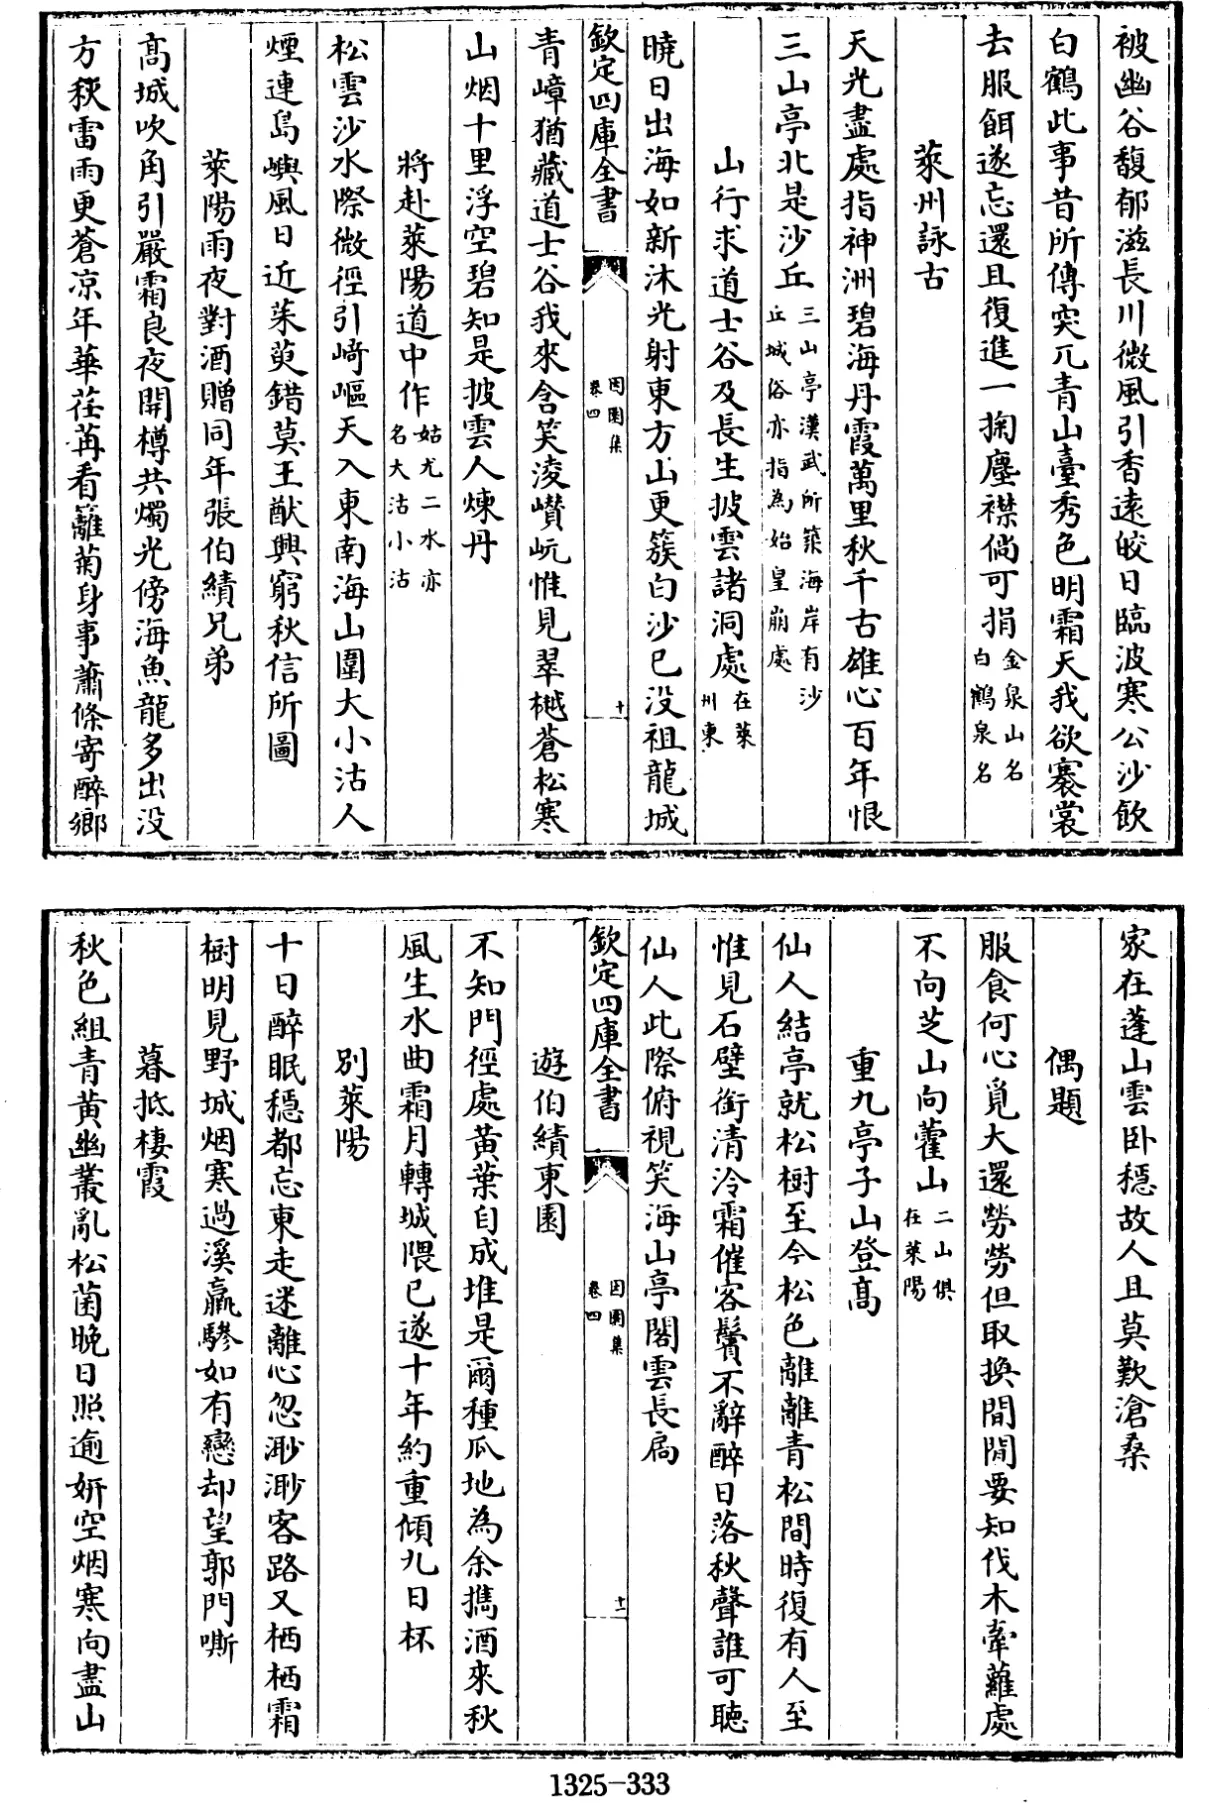 被幽谷馥郁滋長川微風引香遠皎日臨波寒公沙飲
白鶴此事昔所傳突兀青山臺秀色明霜天我欲褰裳
去服餌遂忘還且復進一掬塵襟倘可捐金泉山名白鶴泉名
萊州詠古
天光盡處指神洲碧海丹霞萬里秋千古雄心百年恨
三山亭北是沙丘三山亭漢武所築海岸有沙丘城俗亦指為始皇崩處
山行求道士谷及長生披雲諸洞處在萊州東
曉日出海如新沐光射東方山更簇白沙已没祖龍城
欽定四庫全書 因園集 卷四 十
青嶂猶藏道士谷我來含笑淩巑岏惟見翠樾蒼松寒
山烟十里浮空碧知是披雲人煉丹
將赴萊陽道中作姑尤二水亦名大沽小沽
松雲沙水際微徑引崎嶇天入東南海山圍大小沽人
煙連島嶼風日近茱萸錯莫王猷興窮秋信所圖
萊陽雨夜對酒贈同年張伯績兄弟
高城吹角引嚴霜良夜開樽共燭光傍海魚龍多出没
方秋雷雨更蒼凉年華荏苒看籬菊身事蕭條寄醉鄉
家在蓬山雲卧穩故人且莫歎滄桑
偶題
服食何心覓大還勞勞但取換閒閒要知伐木牽蘿處
不向芝山向藿山二山俱在萊陽
重九亭子山登高
仙人結亭就松樹至今松色離離青松間時復有人至
惟見石壁銜清泠霜催客鬢不辭醉日落秋聲誰可聽
仙人此際俯視笑海山亭閣雲長扃
欽定四庫全書 因園集 卷四 十一
遊伯績東園
不知門徑處黄葉自成堆是爾種瓜地為余攜酒來秋
風生水曲霜月轉城隈已遂十年約重傾九日杯
別萊陽
十日醉眠穩都忘東走迷離心忽渺渺客路又栖栖霜
樹明見野城烟寒過溪羸驂如有戀却望郭門嘶
暮抵棲霞
秋色組青黄幽叢亂松菌晚日照逾妍空烟寒向盡山
1325-333